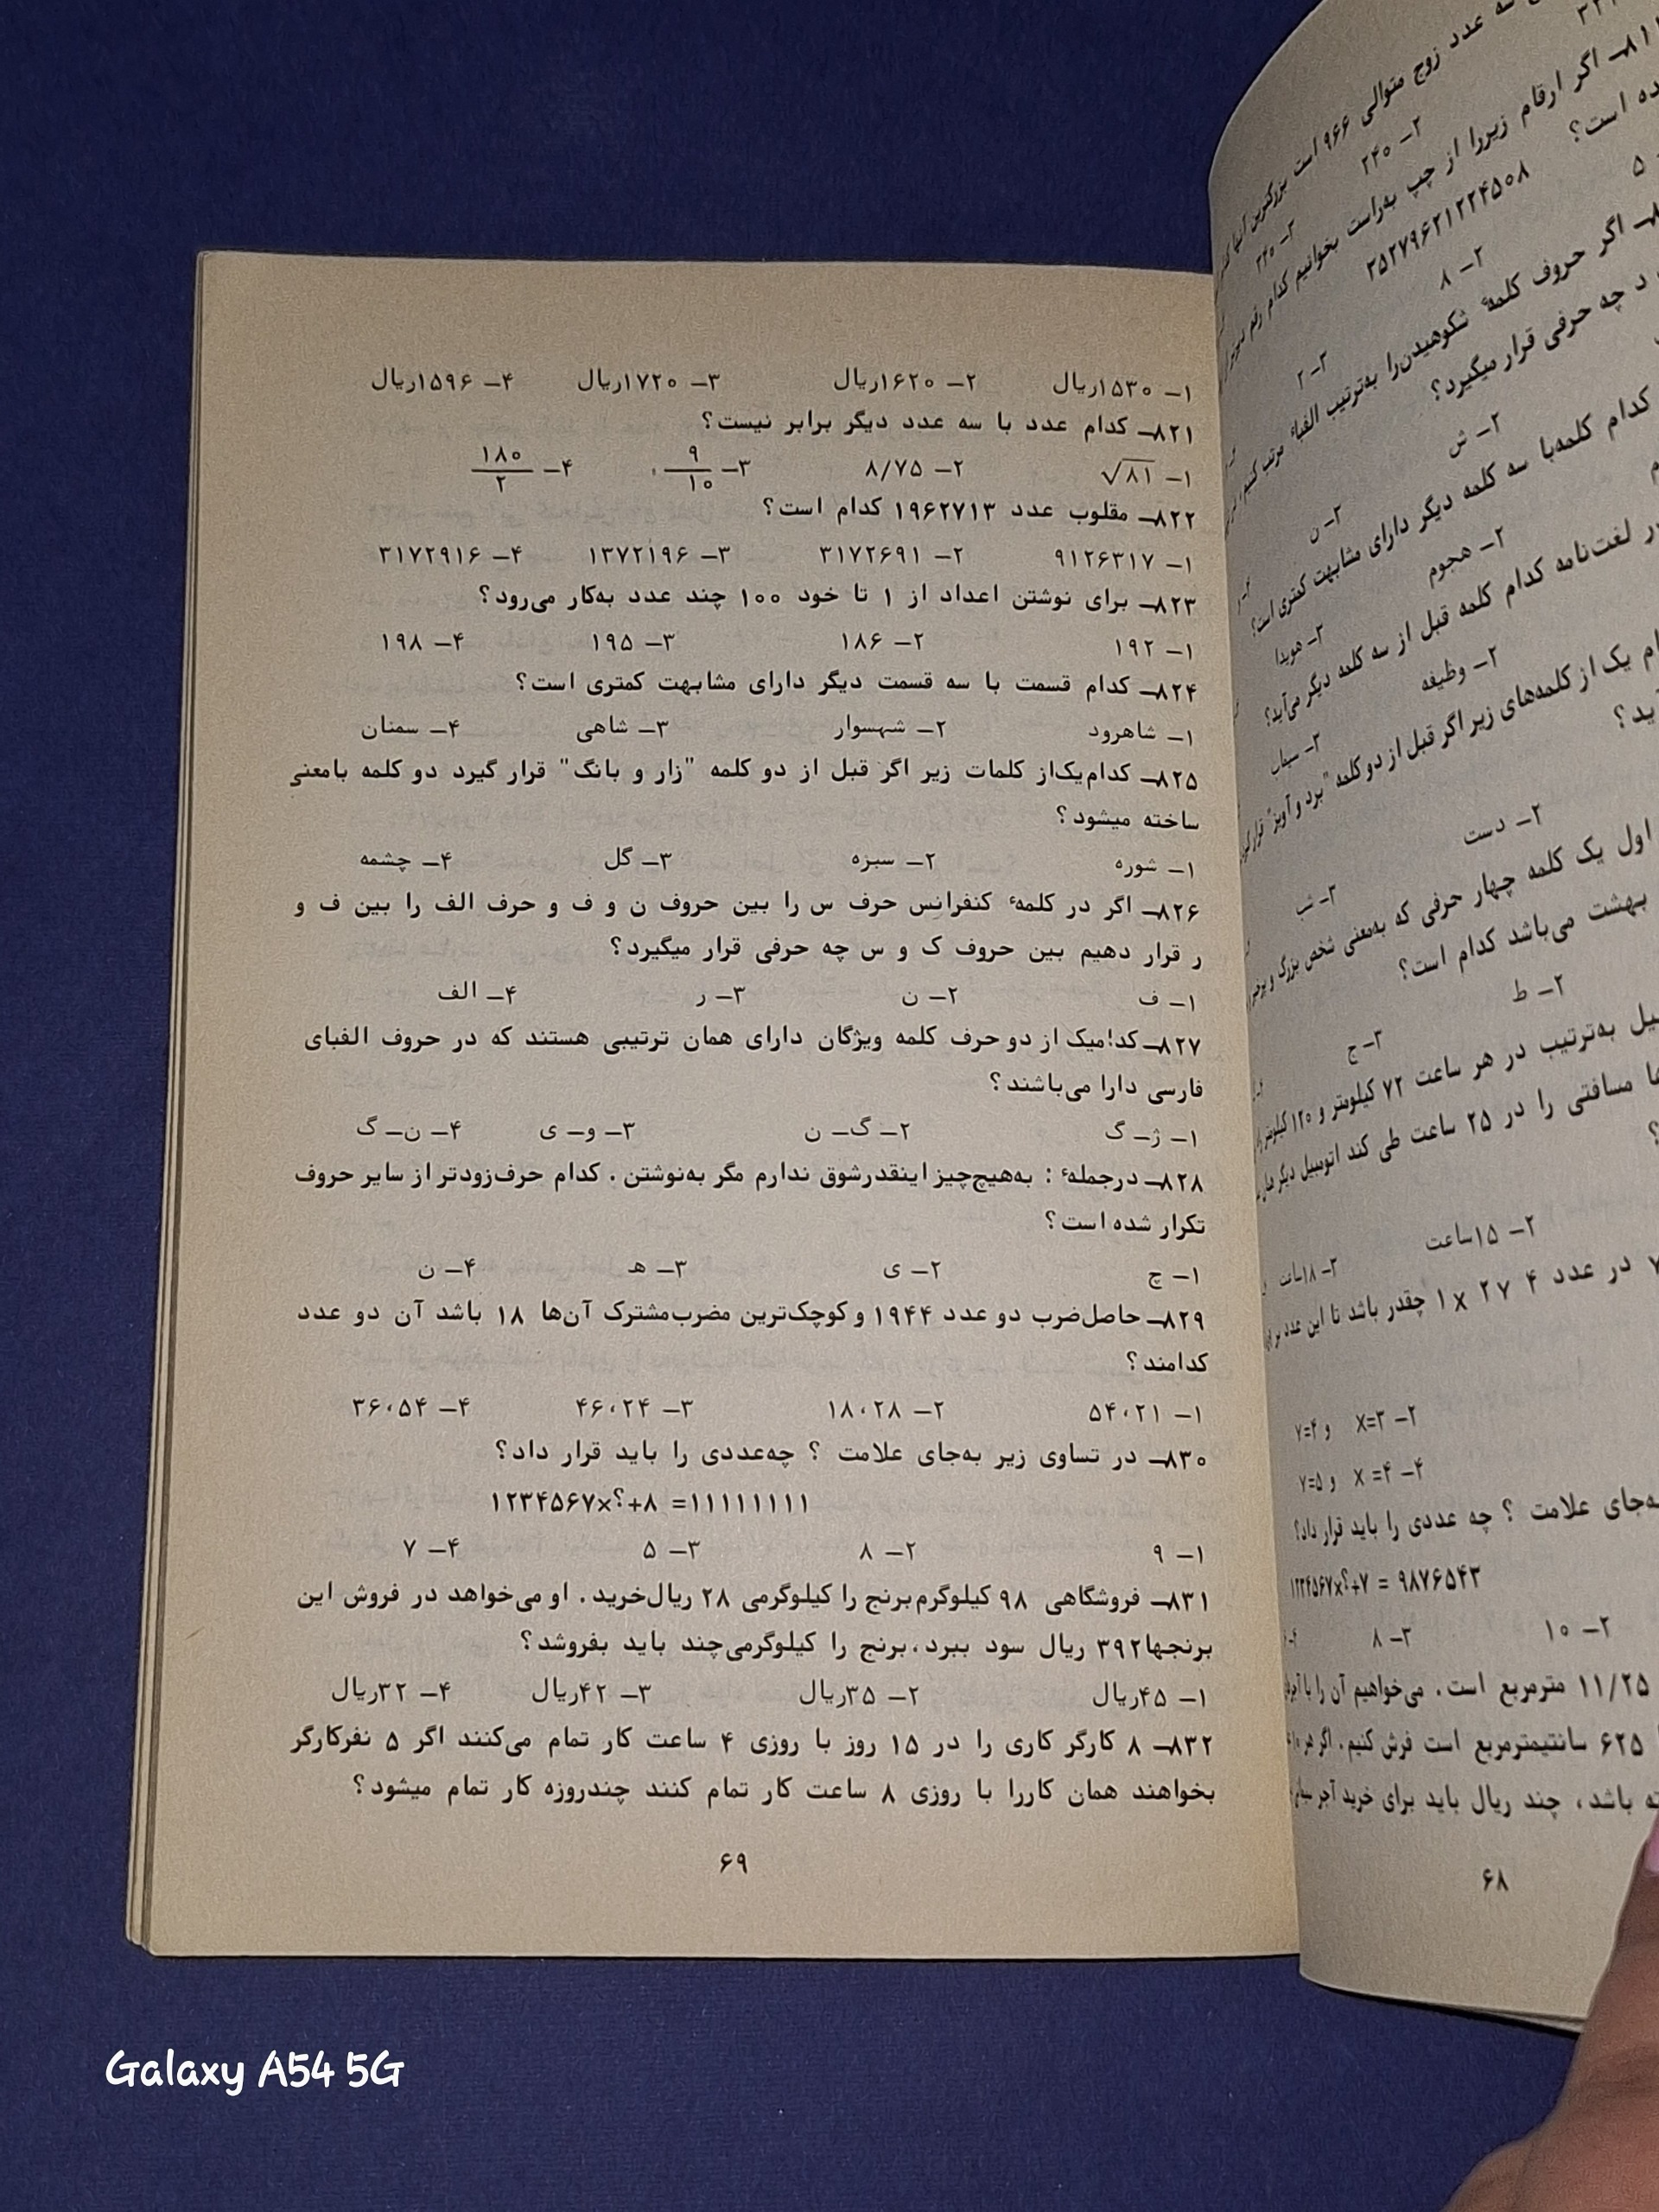 ۱ــ ۱۵۳۰ریال ۲ــ ۱۶۲۰ریال ۳ــ ۱۷۲۰ریال ۴ــ ۱۵۹۶ریال
۸۲۱ــ کدام عدد با سه عدد دیگر برابر نیست؟
۱ــ √۸۱ ۲ــ ۸/۷۵ ۳ــ ۹/۱۰ ۴ــ ۱۸۰/۲
۸۲۲ــ مقلوب عدد ۱۹۶۲۷۱۳ کدام است؟
۱ــ ۹۱۲۶۳۱۷ ۲ــ ۳۱۷۲۶۹۱ ۳ــ ۱۳۷۲۱۹۶ ۴ــ ۳۱۷۲۹۱۶
۸۲۳ــ برای نوشتن اعداد از ۱ تا خود ۱۰۰ چند عدد به‌کار می‌رود؟
۱ــ ۱۹۲ ۲ــ ۱۸۶ ۳ــ ۱۹۵ ۴ــ ۱۹۸
۸۲۴ــ کدام قسمت با سه قسمت دیگر دارای مشابهت کمتری است؟
۱ــ شاهرود ۲ــ شهسوار ۳ــ شاهی ۴ــ سمنان
۸۲۵ــ کدام‌یک‌از کلمات زیر اگر قبل از دو کلمه "زار و بانگ" قرار گیرد دو کلمه بامعنی
ساخته میشود؟
۱ــ شوره ۲ــ سبزه ۳ــ گل ۴ــ چشمه
۸۲۶ــ اگر در کلمهٔ کنفرانس حرف س را بین حروف ن و ف و حرف الف را بین ف و
ر قرار دهیم بین حروف ک و س چه حرفی قرار میگیرد؟
۱ــ ف ۲ــ ن ۳ــ ر ۴ــ الف
۸۲۷ــ کدامیک از دو حرف کلمه ویژگان دارای همان ترتیبی هستند که در حروف الفبای
فارسی دارا می‌باشند؟
۱ــ ژــ گ ۲ــ گــ ن ۳ــ وــ ی ۴ــ نــ گ
۸۲۸ــ درجملهٔ : به‌هیچ‌چیز اینقدرشوق ندارم مگر به‌نوشتن . کدام حرف‌زودتر از سایر حروف
تکرار شده است؟
۱ــ چ ۲ــ ی ۳ــ ه‍ ۴ــ ن
۸۲۹ــ حاصل‌ضرب دو عدد ۱۹۴۴ و کوچک‌ترین مضرب‌مشترک آن‌ها ۱۸ باشد آن دو عدد
کدامند؟
۱ــ ۵۴،۲۱ ۲ــ ۱۸،۲۸ ۳ــ ۴۶،۲۴ ۴ــ ۳۶،۵۴
۸۳۰ــ در تساوی زیر به‌جای علامت ؟ چه‌عددی را باید قرار داد؟
۱۲۳۴۵۶۷×؟+۸ =۱۱۱۱۱۱۱۱
۱ــ ۹ ۲ــ ۸ ۳ــ ۵ ۴ــ ۷
۸۳۱ــ فروشگاهی ۹۸ کیلوگرم‌برنج را کیلوگرمی ۲۸ ریال‌خرید . او می‌خواهد در فروش این
برنجها۳۹۲ ریال سود ببرد، برنج را کیلوگرمی‌چند باید بفروشد؟
۱ــ ۴۵ریال ۲ــ ۳۵ریال ۳ــ ۴۲ریال ۴ــ ۳۲ریال
۸۳۲ــ ۸ کارگر کاری را در ۱۵ روز با روزی ۴ ساعت کار تمام می‌کنند اگر ۵ نفرکارگر
بخواهند همان کاررا با روزی ۸ ساعت کار تمام کنند چندروزه کار تمام میشود؟
۶۹
سه عدد زوج متوالی ۹۶۶ است بزرگترین آنها
۲ــ ۲۴۰
اگر ارقام زیررا از چپ به‌راست بخوانیم کدام رقم
ده است؟
۳۵۲۷۹۶۲۱۲۲۴۵۰۸
۲ــ ۸ ۳ــ ۲
اگر حروف کلمهٔ شکوهیدن‌را به‌ترتیب الفباء مرتب کنیم
د چه حرفی قرار میگیرد؟
۲ــ ش ۳ــ ن
کدام کلمه‌با سه کلمه دیگر دارای مشابهت کمتری است؟
۲ــ هجوم ۳ــ هویدا
در لغت‌نامه کدام کلمه قبل از سه کلمه دیگر می‌آید؟
۲ــ وظیفه ۳ــ سیماب
یک از کلمه‌های زیر اگر قبل از دو کلمه "برد و آویز" قرار
آید؟
۲ــ دست ۳ــ شب
اول یک کلمه چهار حرفی که به‌معنی شخص بزرگ و
بهشت می‌باشد کدام است؟
۲ــ ط ۳ــ ج
به‌ترتیب در هر ساعت ۷۲ کیلومتر و ۱۲۰ کیلومتر
مسافتی را در ۲۵ ساعت طی کند اتومبیل دیگر
۲ــ ۱۵ساعت ۳ــ ۱۸ساعت
در عدد ۴ ۲۷ x ۱ چقدر باشد تا این عدد
۲ــ x=۳ و y=۴
۴ــ x =۴ و y=۵
به‌جای علامت ؟ چه عددی را باید قرار داد؟
۱۲۳۴۵۶۷×؟+۷ = ۹۸۷۶۵۴۳
۲ــ ۱۰ ۳ــ ۸
۱۱/۲۵ مترمربع است . می‌خواهیم آن را با
۶۲۵ سانتیمترمربع است فرش کنیم . اگر هر
باشد، چند ریال باید برای خرید آجر
۶۸
Galaxy A54 5G